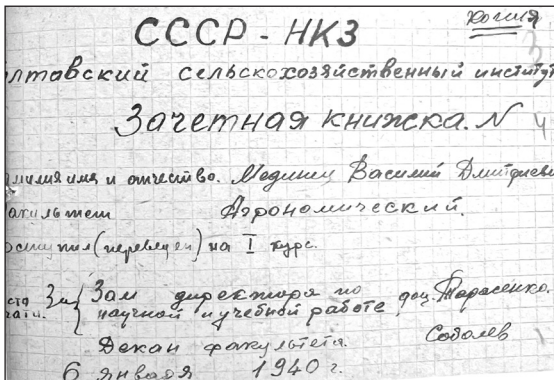 копия
СССР - НКЗ
лтавский сельскохозяйственный институт
Зачетная книжка. N 4
милия имя и отчество. Василий Дмитриеви
акультет Агрономический.
оступил (переведен) на I курс.
Зам директора по
научной и учебной работе, доц. Тарасенко.
Декан факультета. Соболев
6 января 1940 г.